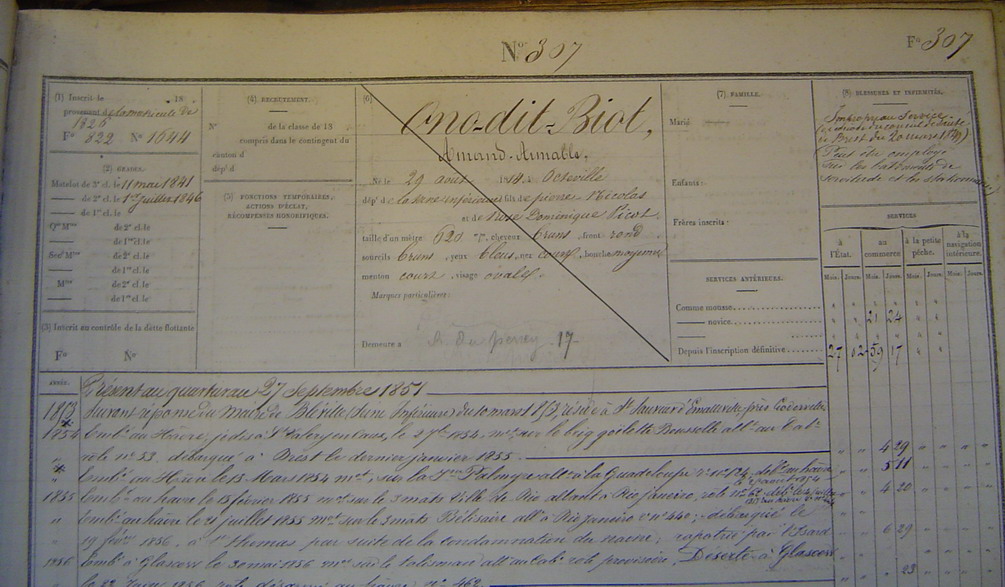 N° 307
F° 307
(1) Inscrit le 18
provenant de la matricule de
1826
F° 822 N° 1644
(2) GRADES.
Matelot de 3e cl. le 11 mai 1841
— de 2e cl. le 1er juillet 1846
— de 1re cl. le
Qer Mtre de 2e cl. le
— de 1re cl. le
Secd Mtre de 2e cl. le
— de 1re cl. le
Mtre de 2e cl. le
— de 1re cl. le
(3) Inscrit au contrôle de la dette flottante
F° N°
(4) RECRUTEMENT.
N° de la classe de 18
compris dans le contingent du
canton d
dép' d
(5) FONCTIONS TEMPORAIRES,
ACTIONS D'ÉCLAT,
RÉCOMPENSES HONORIFIQUES.
(6)
Ono-dit-Biot,
Amand-Aimable,
Né le 29 août 1814 à Octeville
dép' d la Seine inférieure fils de pierre Nicolas
et de Rose Dominique Picot
taille d'un mètre 620 mm, cheveux bruns, front rond
sourcils bruns, yeux bleus, nez court, bouche moyenne
menton court, visage ovale.
Marques particulières:
Demeure à 17
(7) FAMILLE.
Marié
Enfants:
Frères inscrits:
SERVICES ANTÉRIEURS.
Comme mousse
— novice 21 24
Depuis l'inscription définitive 27 12 59 17
(8) BLESSURES ET INFIRMITÉS.
Impropre au Service
de Brest du 20 mars 1849)
Peut être employé
SERVICES
à l'État. au commerce à la petite pêche. à la navigation intérieure.
Mois. Jours. Mois. Jours. Mois. Jours. Mois. Jours.
ANNÉE.
Présent au quartier au 27 Septembre 1851
1853 Suivant réponse du Maire de Bléville (Seine Inférieure) du 10 mars 1853, réside à St Sauveur d'Emalleville, près Goderville
1854 Emb. au Hâvre, jedis à St Valery en Caux, le 1854, mot sur le brig goëlette Boussolle allt au Cab.
rôle n° 53, débarqué à Brest le dernier janvier 1855 4 29
Emb. au Hâvre le 15 Mars 1854 mot, sur le Palmyre allt à la Guadeloupe 5 11
1855 Emb. au havre le 15 février 1855 mot sur le 3 mats Ville de Rio allant à Rio Janeiro, rôle n° 62 4 20
Emb. au hâvre le 21 juillet 1855 mot sur le 3 mats Bélisaire allt à Rio Janeiro r. n° 440; débarqué le
19 févr 1856, à St Thomas par suite de la condamnation du navire; rapatrié par l'Isard 6 29
1856 Emb. à Glascow le 30 mai 1856 mot sur le Talisman allt au Cab. rôle provisoire, Déserté à Glascow
le 22 Juin 1856, rôle désarmé au havre n° 462 23